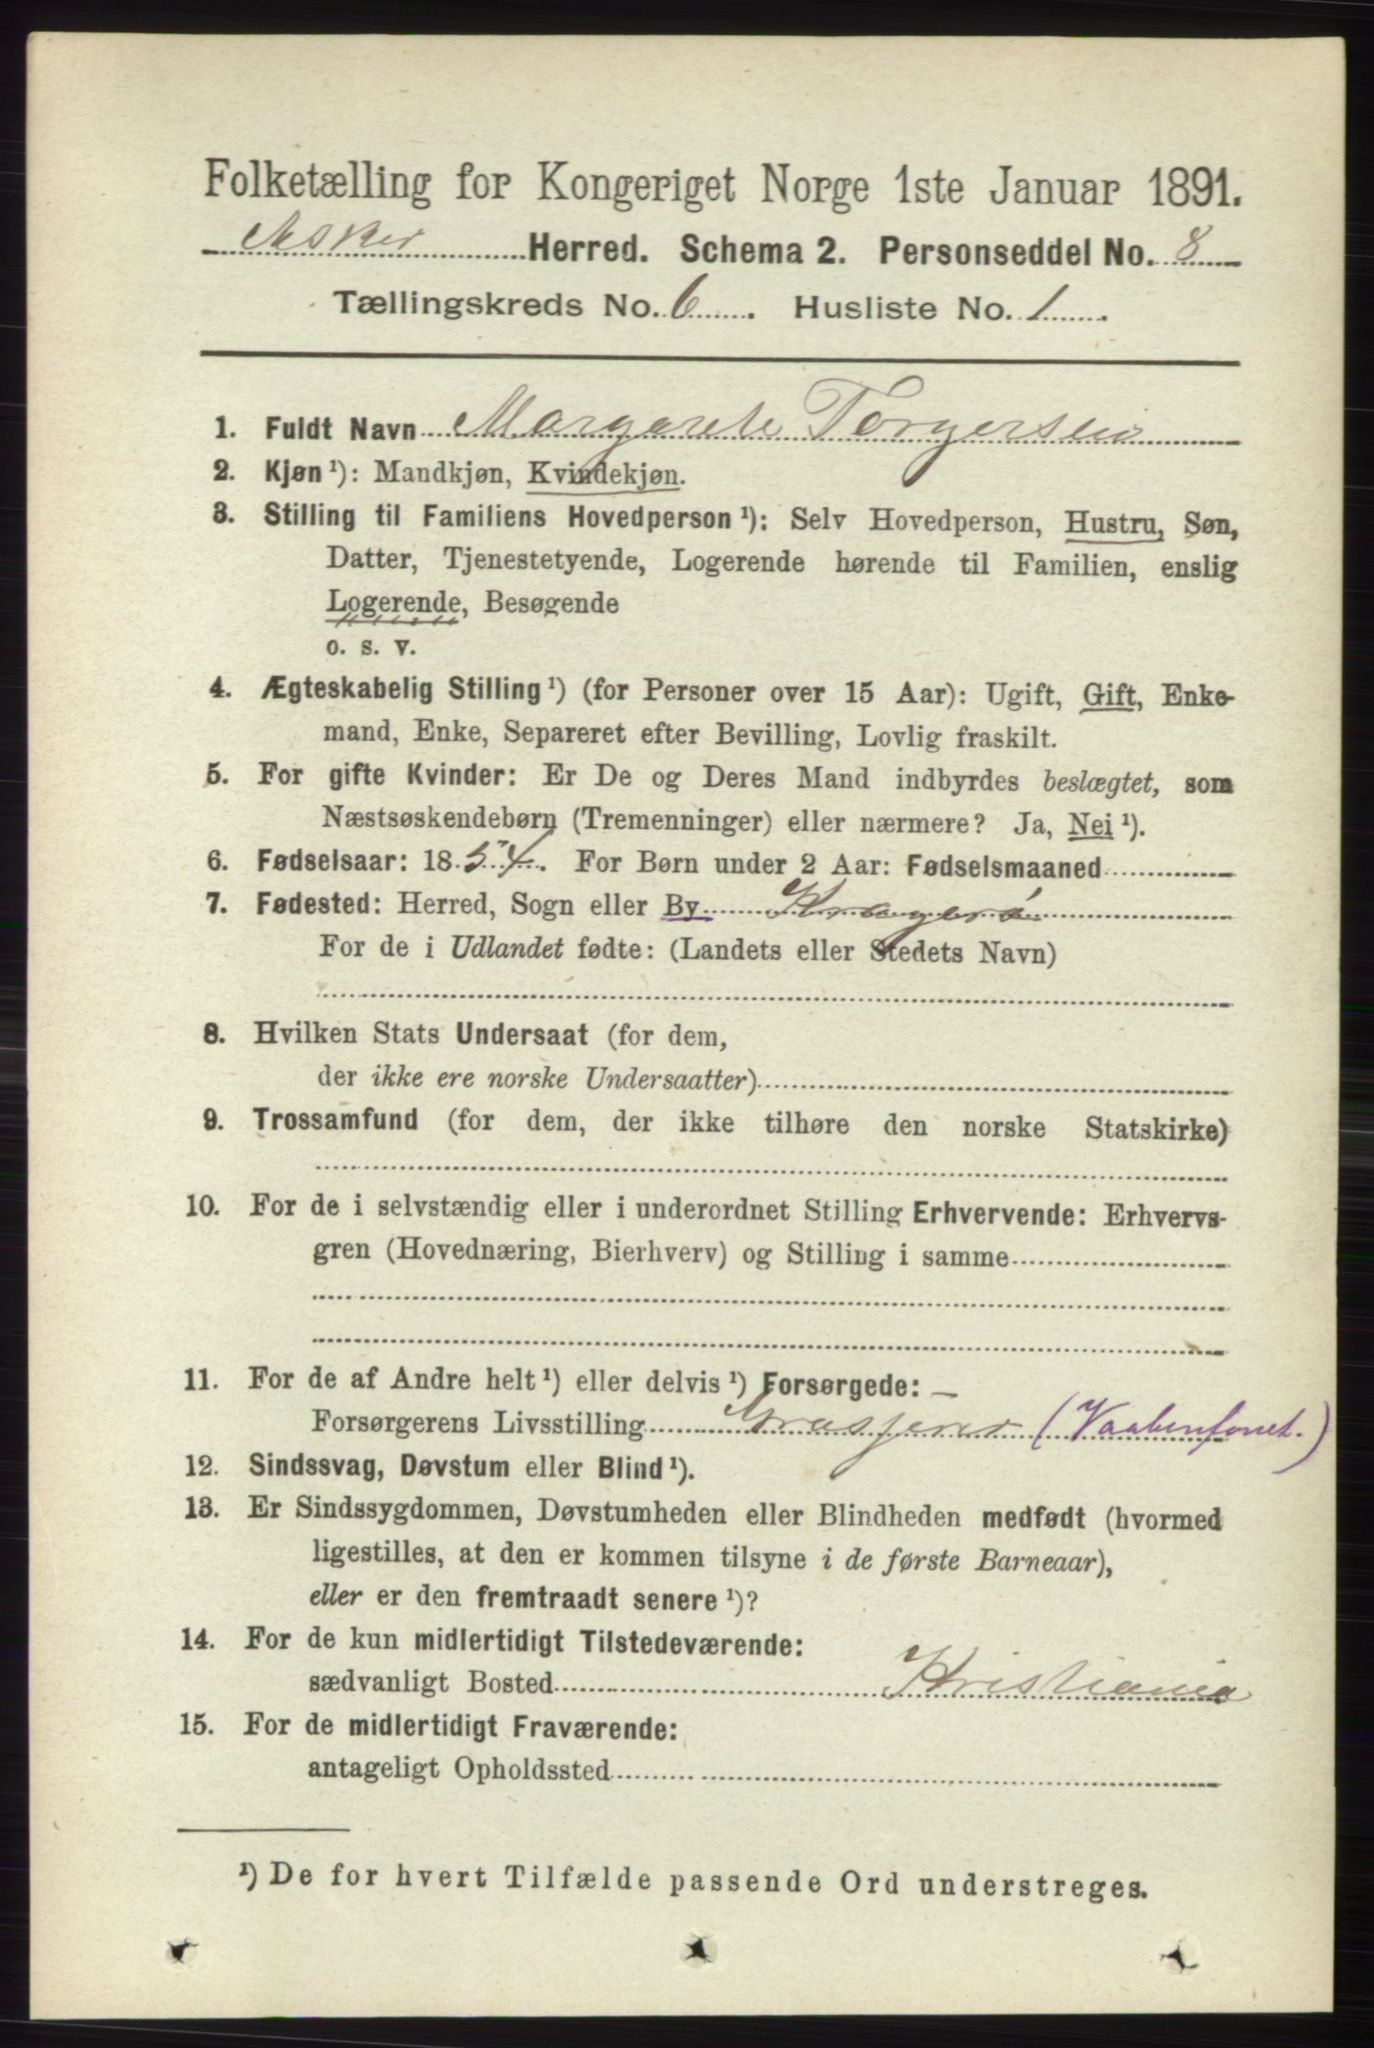 Folketælling for Kongeriget Norge 1ste Januar 1891.
Asker Herred. Schema 2. Personseddel No. 8
Tællingskreds No. 6. Husliste No. 1.
1. Fuldt Navn Margarete Torgersen
2. Kjøn ¹): Mandkjøn, Kvindekjøn.
3. Stilling til Familiens Hovedperson ¹): Selv Hovedperson, Hustru, Søn,
Datter, Tjenestetyende, Logerende hørende til Familien, enslig
Logerende, Besøgende
o. s. v.
4. Ægteskabelig Stilling ¹) (for Personer over 15 Aar): Ugift, Gift, Enke-
mand, Enke, Separeret efter Bevilling, Lovlig fraskilt.
5. For gifte Kvinder: Er De og Deres Mand indbyrdes beslægtet, som
Næstsøskendebørn (Tremenninger) eller nærmere? Ja, Nei ¹).
6. Fødselsaar: 1854. For Børn under 2 Aar: Fødselsmaaned
7. Fødested: Herred, Sogn eller By Kragerø
For de i Udlandet fødte: (Landets eller Stedets Navn)
8. Hvilken Stats Undersaat (for dem,
der ikke ere norske Undersaatter)
9. Trossamfund (for dem, der ikke tilhøre den norske Statskirke)
10. For de i selvstændig eller i underordnet Stilling Erhvervende: Erhvervs-
gren (Hovednæring, Bierhverv) og Stilling i samme
11. For de af Andre helt ¹) eller delvis ¹) Forsørgede: —
Forsørgerens Livsstilling Kasserer (Vaabenforret.)
12. Sindssvag, Døvstum eller Blind ¹).
13. Er Sindssygdommen, Døvstumheden eller Blindheden medfødt (hvormed
ligestilles, at den er kommen tilsyne i de første Barneaar),
eller er den fremtraadt senere ¹)?
14. For de kun midlertidigt Tilstedeværende:
sædvanligt Bosted Kristiania
15. For de midlertidigt Fraværende:
antageligt Opholdssted
¹) De for hvert Tilfælde passende Ord understreges.